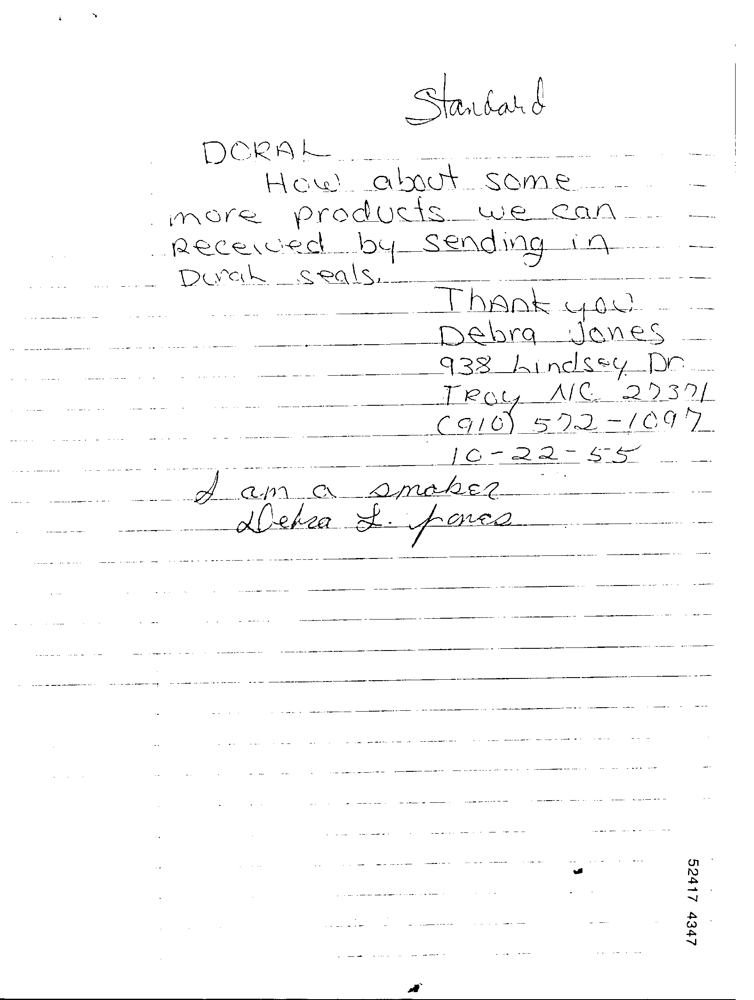 Standard
DORAL
How about some
more products we can
Received by sending in
Doral seals.
Thank you
Debra Jones
938 Lindsey Dr.
Troy NC 27371
(910) 572-1097
10-22-55
I am a smoker
Debra L. Jones
52417 4347